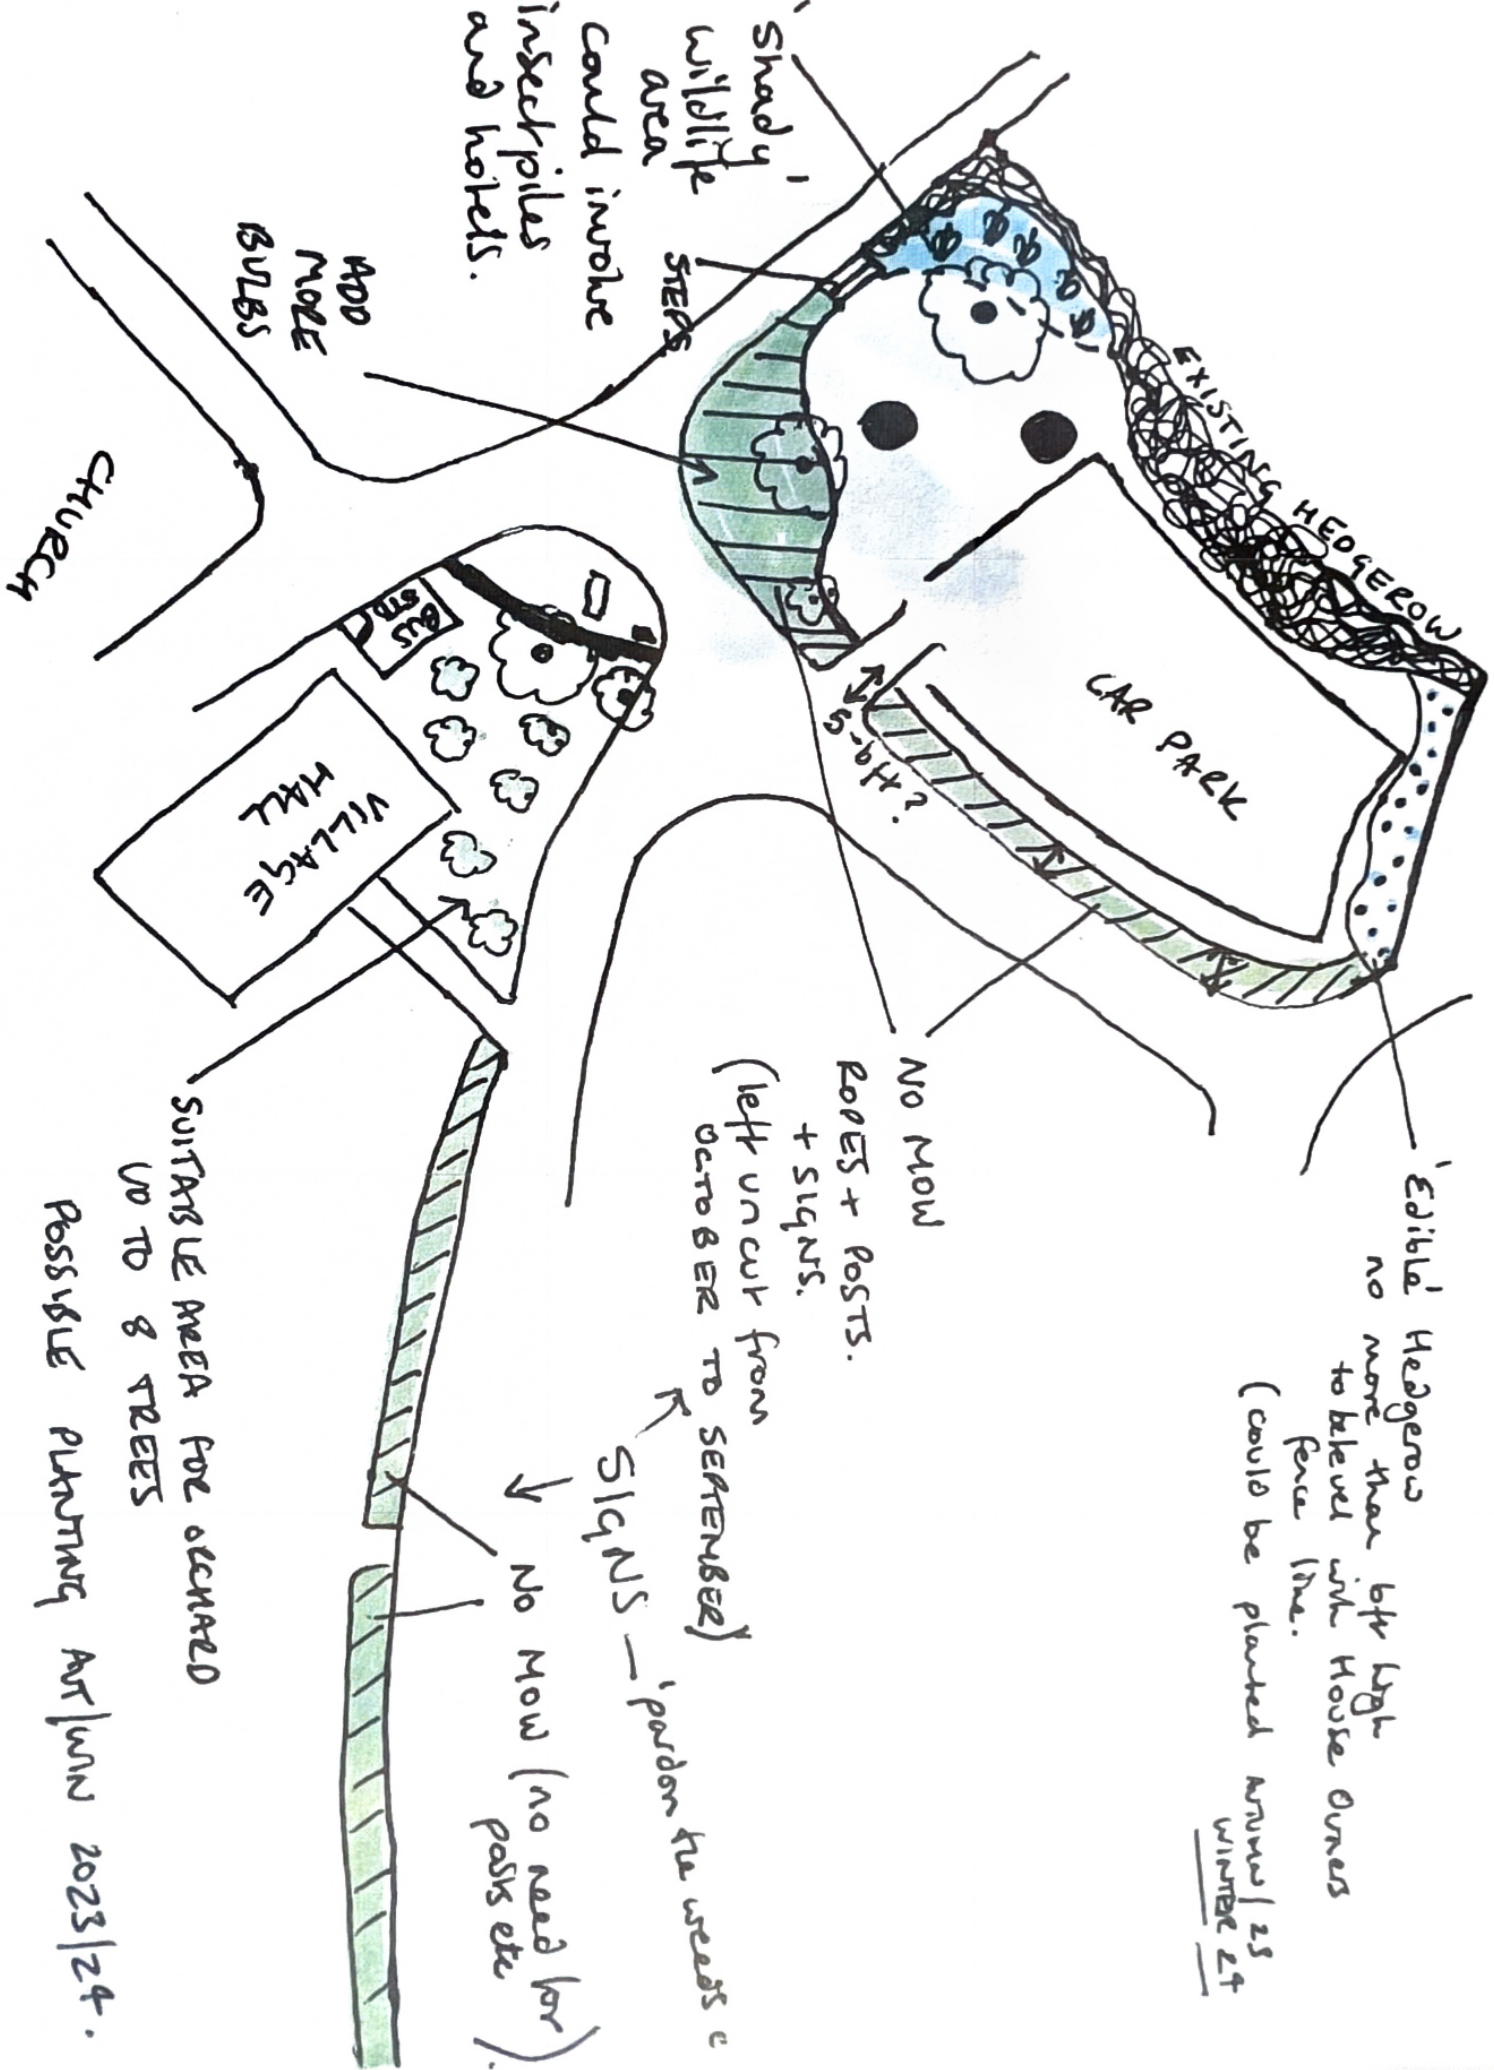 'Shady'
Wildlife
area
could involve
insect piles
and hotels.
STEPS
ADD
MORE
BULBS
CHURCH
EXISTING HEDGEROW
CAR PARK
5-6ft?
BUS
STOP
VILLAGE
HALL
'Edible' Hedgerow
no more than 6ft high
to be level with House Owners
fence line.
(could be planted AUTUMN/23
WINTER 24
NO MOW
ROPES + POSTS.
+ SIGNS.
(left uncut from
OCTOBER TO SEPTEMBER)
SIGNS — 'pardon the weeds
NO MOW (no need for
posts etc).
SUITABLE AREA FOR ORCHARD
UP TO 8 TREES
POSSIBLE PLANTING AUT/WIN 2023/24.